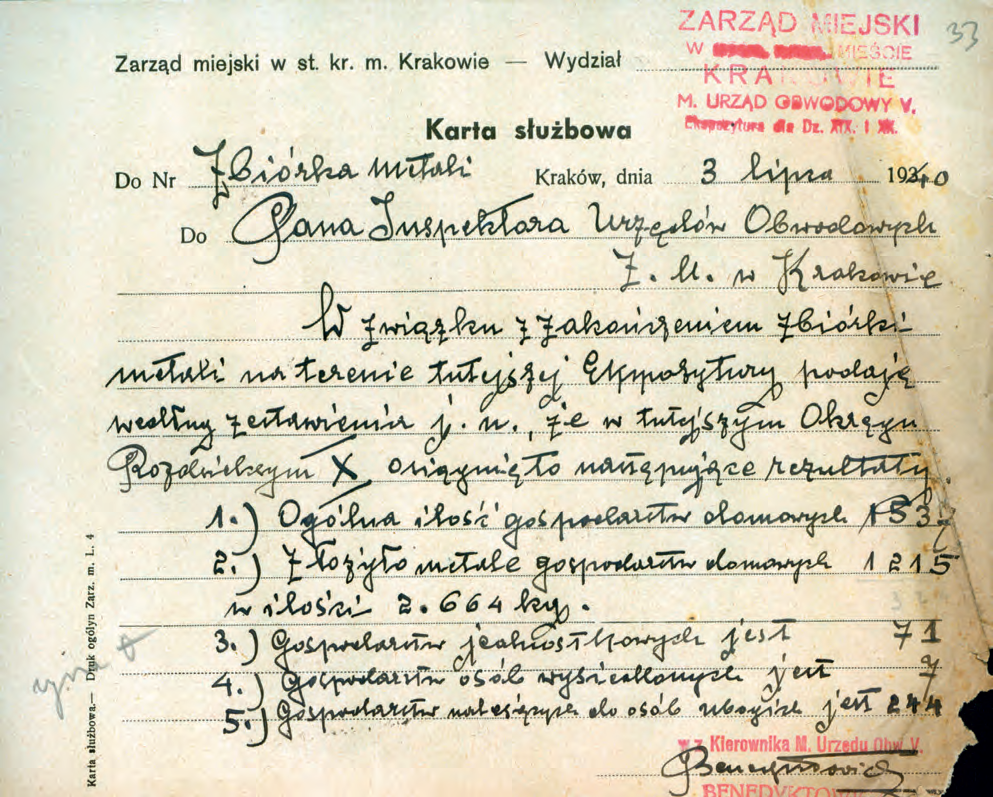 33
ZARZĄD MIEJSKI
W MIEŚCIE
KRAKOWIE
M. URZĄD OBWODOWY V.
Ekspozytura dla Dz. XIX. i XX.
Zarząd miejski w st. kr. m. Krakowie — Wydział
Karta służbowa
Do Nr Zbiórka metali Kraków, dnia 3 lipca 1940
Do Pana Inspektora Urzędów Obwodowych
Z. M. w Krakowie
W związku z zakończeniem zbiórki
metali na terenie tutejszej Ekspozytury podaję
według zestawienia j. n., że w tutejszym Okręgu
Rozdzielczym X osiągnięto następujące rezultaty.
1.) Ogólna ilość gospodarstw domowych 1537
2.) Złożyło metale gospodarstw domowych 1215
w ilości 2.664 kg.
3.) Gospodarstw jednostkowych jest 71
4.) Gospodarstw osób wysiedlonych jest 7
5.) Gospodarstw należących do osób ubogich jest 244
w z. Kierownika M. Urzędu Obw. V.
Karta służbowa.— Druk ogólny Zarz. m. L. 4